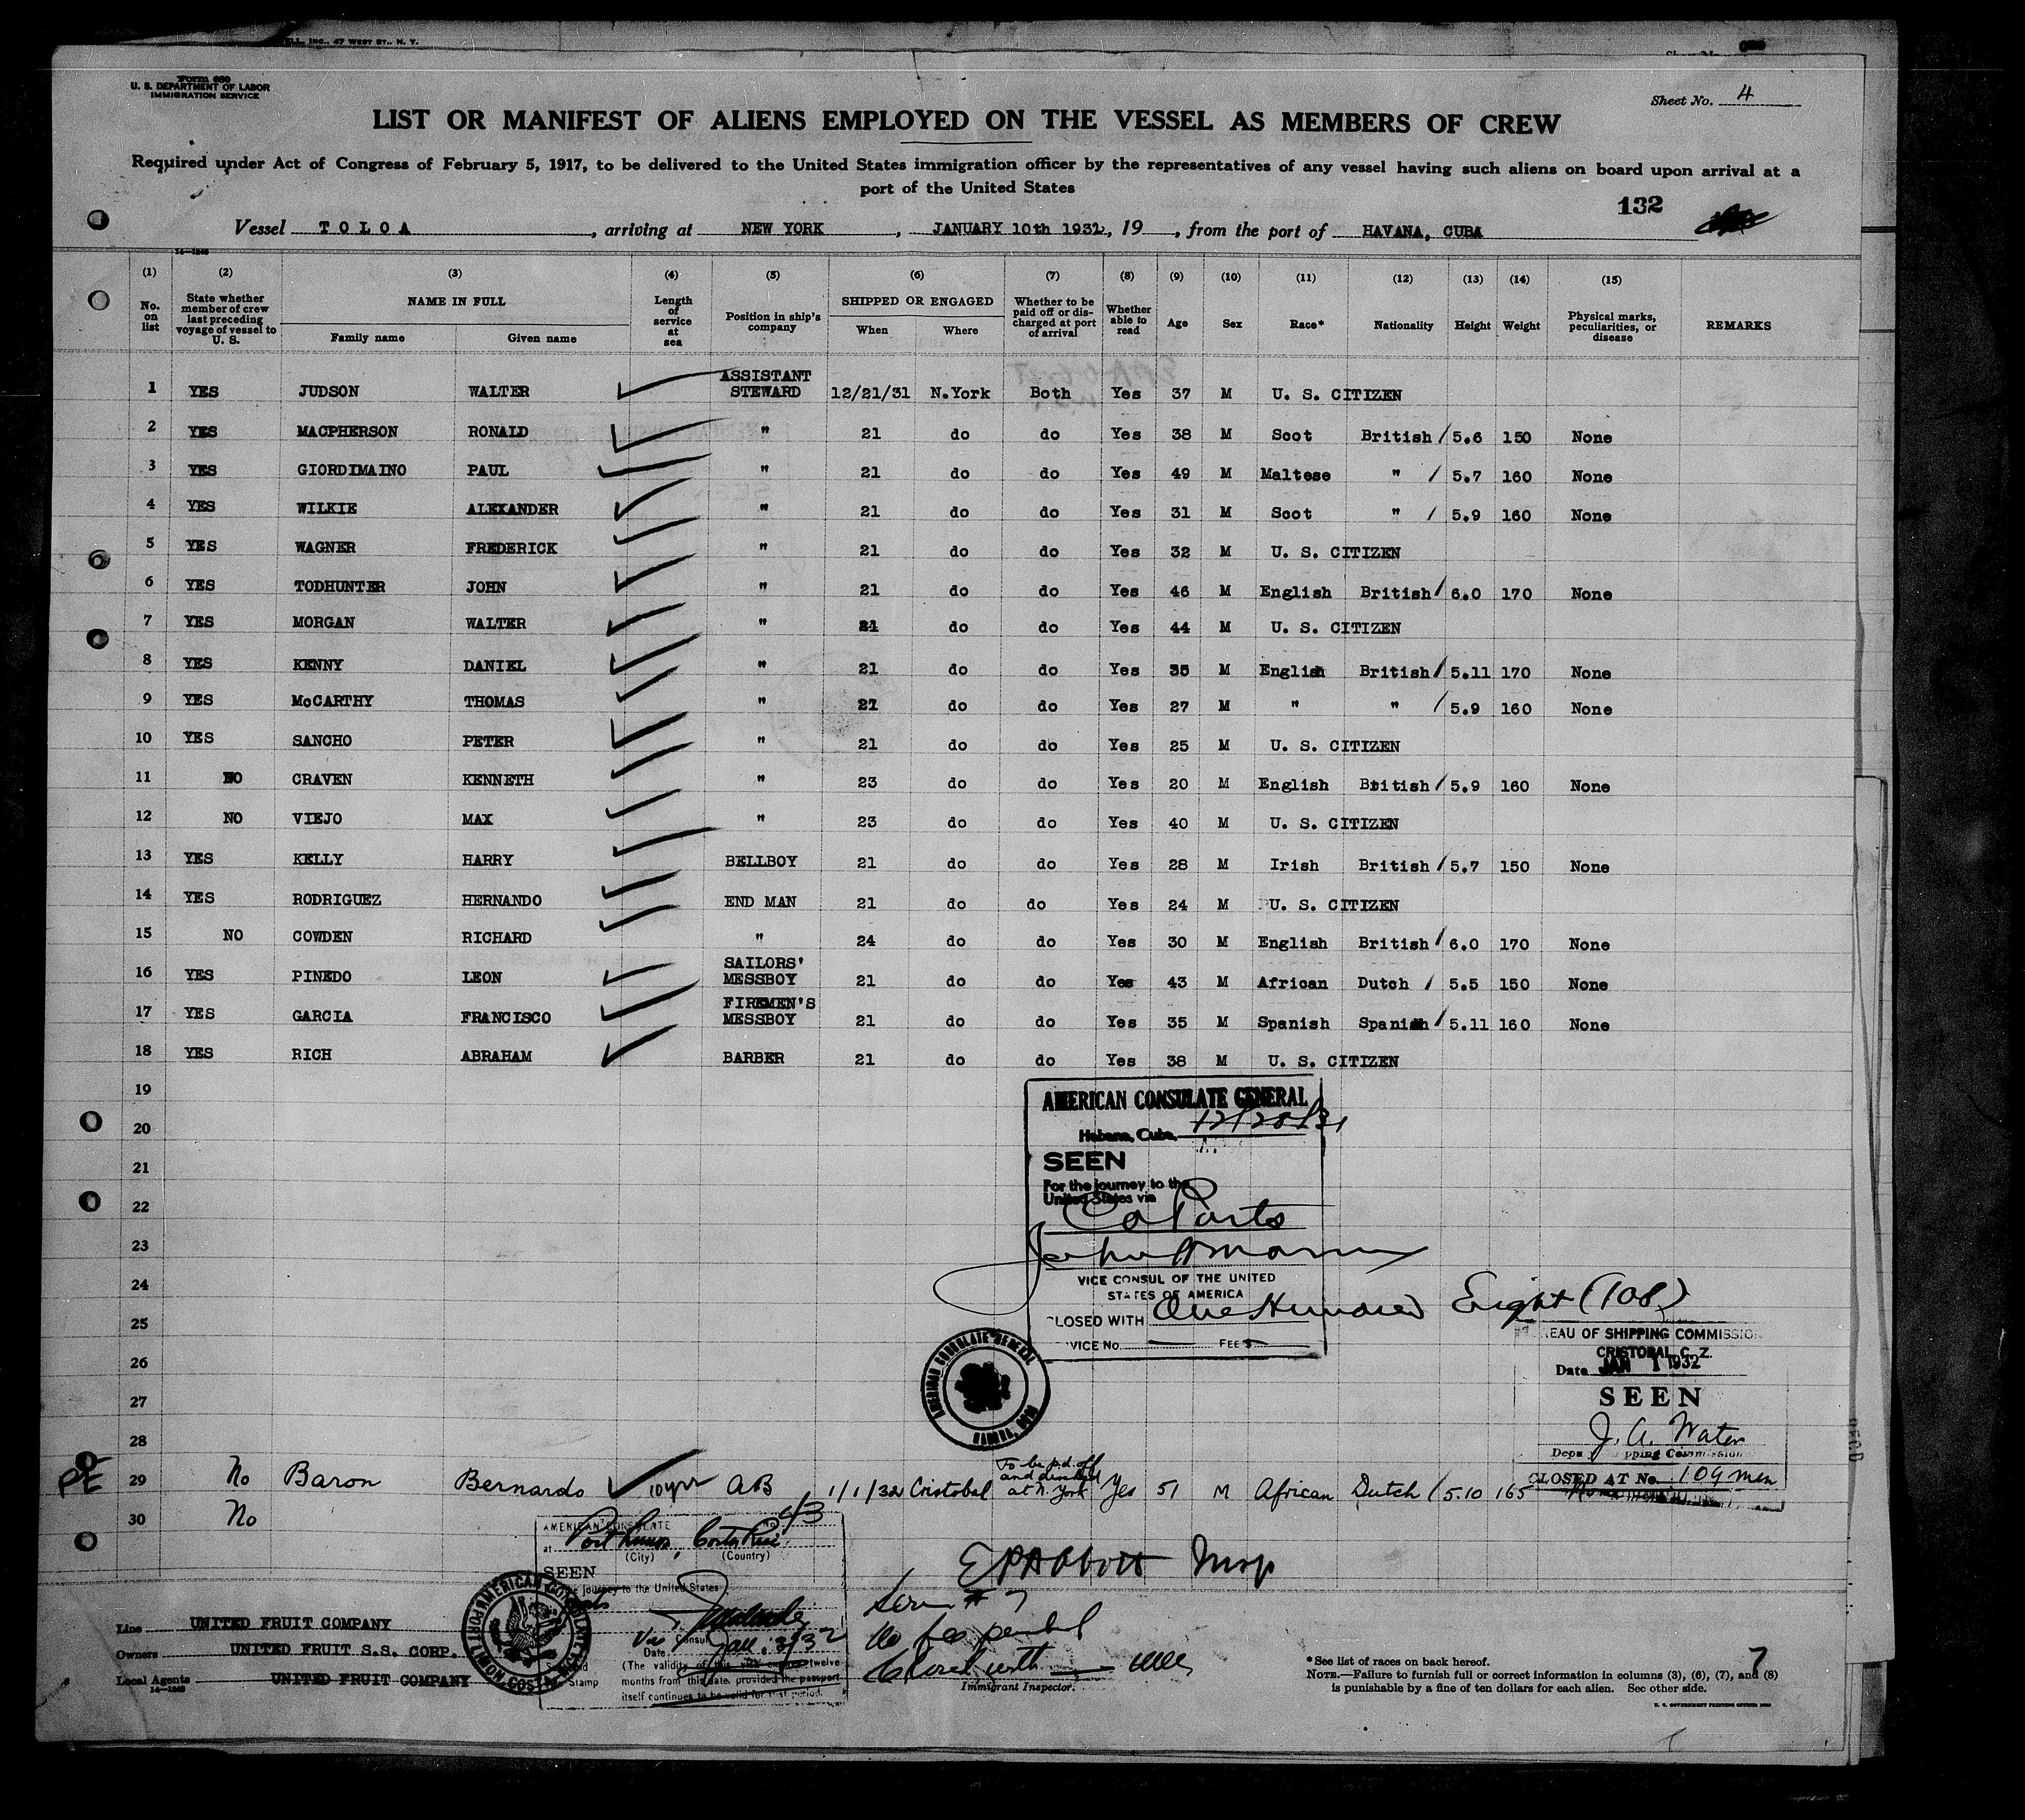 ELL, INC., 47 WEST ST., N. Y.
Form 680
U. S. DEPARTMENT OF LABOR
IMMIGRATION SERVICE
Sheet No. 4
LIST OR MANIFEST OF ALIENS EMPLOYED ON THE VESSEL AS MEMBERS OF CREW
Required under Act of Congress of February 5, 1917, to be delivered to the United States immigration officer by the representatives of any vessel having such aliens on board upon arrival at a
port of the United States
132
Vessel TOLOA, arriving at NEW YORK, JANUARY 10th 1932, 19 , from the port of HAVANA, CUBA
14—1240
(1) (2) (3) (4) (5) (6) (7) (8) (9) (10) (11) (12) (13) (14) (15)
No. on list State whether member of crew last preceding voyage of vessel to U. S. NAME IN FULL Family name Given name Length of service at sea Position in ship's company SHIPPED OR ENGAGED When Where Whether to be paid off or discharged at port of arrival Whether able to read Age Sex Race* Nationality Height Weight Physical marks, peculiarities, or disease REMARKS
1 YES JUDSON WALTER ASSISTANT STEWARD 12/21/31 N.York Both Yes 37 M U. S. CITIZEN
2 YES MACPHERSON RONALD " 21 do do Yes 38 M Scot British / 5.6 150 None
3 YES GIORDIMAINO PAUL " 21 do do Yes 49 M Maltese " / 5.7 160 None
4 YES WILKIE ALEXANDER " 21 do do Yes 31 M Scot " / 5.9 160 None
5 YES WAGNER FREDERICK " 21 do do Yes 32 M U. S. CITIZEN
6 YES TODHUNTER JOHN " 21 do do Yes 46 M English British / 6.0 170 None
7 YES MORGAN WALTER " 21 do do Yes 44 M U. S. CITIZEN
8 YES KENNY DANIEL " 21 do do Yes 35 M English British / 5.11 170 None
9 YES McCARTHY THOMAS " 21 do do Yes 27 M " " / 5.9 160 None
10 YES SANCHO PETER " 21 do do Yes 25 M U. S. CITIZEN
11 NO CRAVEN KENNETH " 23 do do Yes 20 M English British / 5.9 160 None
12 NO VIEJO MAX " 23 do do Yes 40 M U. S. CITIZEN
13 YES KELLY HARRY BELLBOY 21 do do Yes 28 M Irish British / 5.7 150 None
14 YES RODRIGUEZ HERNANDO END MAN 21 do do Yes 24 M U. S. CITIZEN
15 NO COWDEN RICHARD " 24 do do Yes 30 M English British / 6.0 170 None
16 YES PINEDO LEON SAILORS' MESSBOY 21 do do Yes 43 M African Dutch / 5.5 150 None
17 YES GARCIA FRANCISCO FIREMEN'S MESSBOY 21 do do Yes 35 M Spanish Spanish / 5.11 160 None
18 YES RICH ABRAHAM BARBER 21 do do Yes 38 M U. S. CITIZEN
19
20
21
22
23
24
25
26
27
28
AMERICAN CONSULATE GENERAL
Habana, Cuba,
SEEN
For the journey to the
United States via
VICE CONSUL OF THE UNITED
STATES OF AMERICA
CLOSED WITH One Hundred Eight (108)
VICE No. FEE
AMERICAN CONSULATE GENERAL
EAU OF SHIPPING COMMISSION
CRISTOBAL, C. Z.
Date JAN 1 1932
SEEN
J. A. Water
CLOSED AT No. 109 men
29 No Baron Bernardo 10 yrs AB 1/1/32 Cristobal To be pd. off and at N. York Yes 51 M African Dutch / 5.10 165
30 No
AMERICAN CONSULATE
at Port Limon, Costa Rica
(City) (Country)
SEEN
journey to the United States
Consul
Date Jan. 3/32
(The validity of this twelve
months from this date, provided the passport
itself continues to be valid for that period.
Stamp
E P Abbott
No fee
Closed with
Immigrant Inspector.
Line UNITED FRUIT COMPANY
Owners UNITED FRUIT S.S. CORP.
Local Agents UNITED FRUIT COMPANY
14—1240
*See list of races on back hereof.
NOTE.—Failure to furnish full or correct information in columns (3), (6), (7), and (8)
is punishable by a fine of ten dollars for each alien. See other side.
7